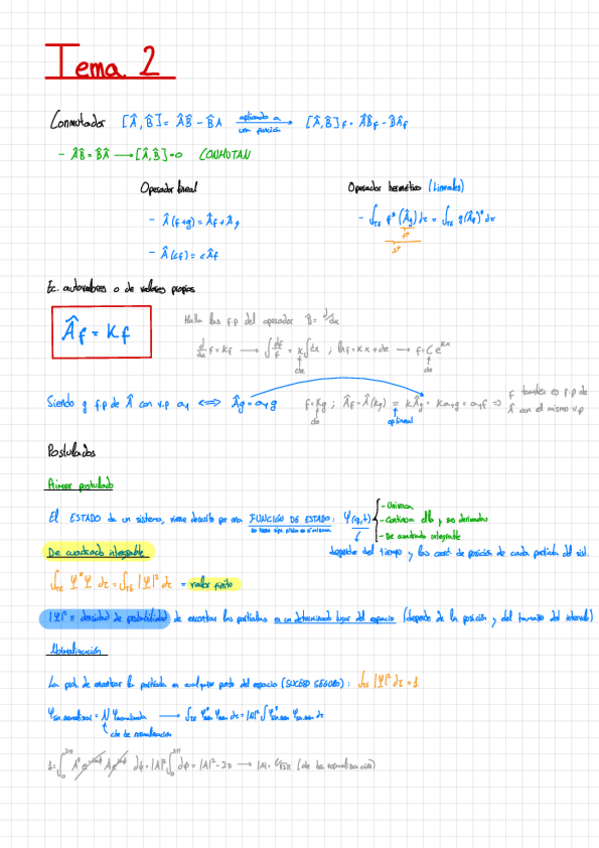 Tema 2
Conmutador [Â,B̂] = ÂB̂ - B̂Â aplicado a una función → [Â,B̂]f = ÂB̂f - B̂Âf
- ÂB̂ = B̂Â → [Â,B̂] = 0 CONMUTAN
Operador lineal
- Â(f+g) = Âf + Âg
- Â(cf) = cÂf
Operador hermético (Lineales)
- ∫ f*(Âg)dτ = ∫ g(Âf)*dτ
1º
2º
Ec. autovalores o de valores propios
Âf = Kf
Halla las f.p del operador B̂ = d/dx
d/dx f = Kf → ∫ df/f = K∫dx ; lnf = Kx + cte → f = C e^Kx
cte
cte
Siendo g f.p de Â con v.p a₁ ⟺ Âg = a₁g
f = Kg ; Âf = Â(Kg) = KÂg = Ka₁g = a₁f ⇒ f también es f.p de Â con el mismo v.p
cte
op lineal
Postulados
Primer postulado
El ESTADO de un sistema, viene descrito por una FUNCIÓN DE ESTADO: Ψ(q,t)
- Unívoca
- Continua ella y sus derivadas
- De cuadrado integrable
De cuadrado integrable
depende del tiempo y las coord. de posición de cada partícula del sist.
∫ Ψ*Ψ dτ = ∫ |Ψ|² dτ = valor finito
|Ψ|² = densidad de probabilidad de encontrar las partículas en un determinado lugar del espacio (depende de la posición y del tamaño del intervalo)
Normalización
La prob. de encontrar la partícula en cualquier punto del espacio (SUCESO SEGURO): ∫ |Ψ|² dτ = 1
cte de normalización
1 = ∫₀²π dφ = |A|² ∫₀²π dφ = |A|² · 2π → |A| = 1/√2π (cte de normalización)